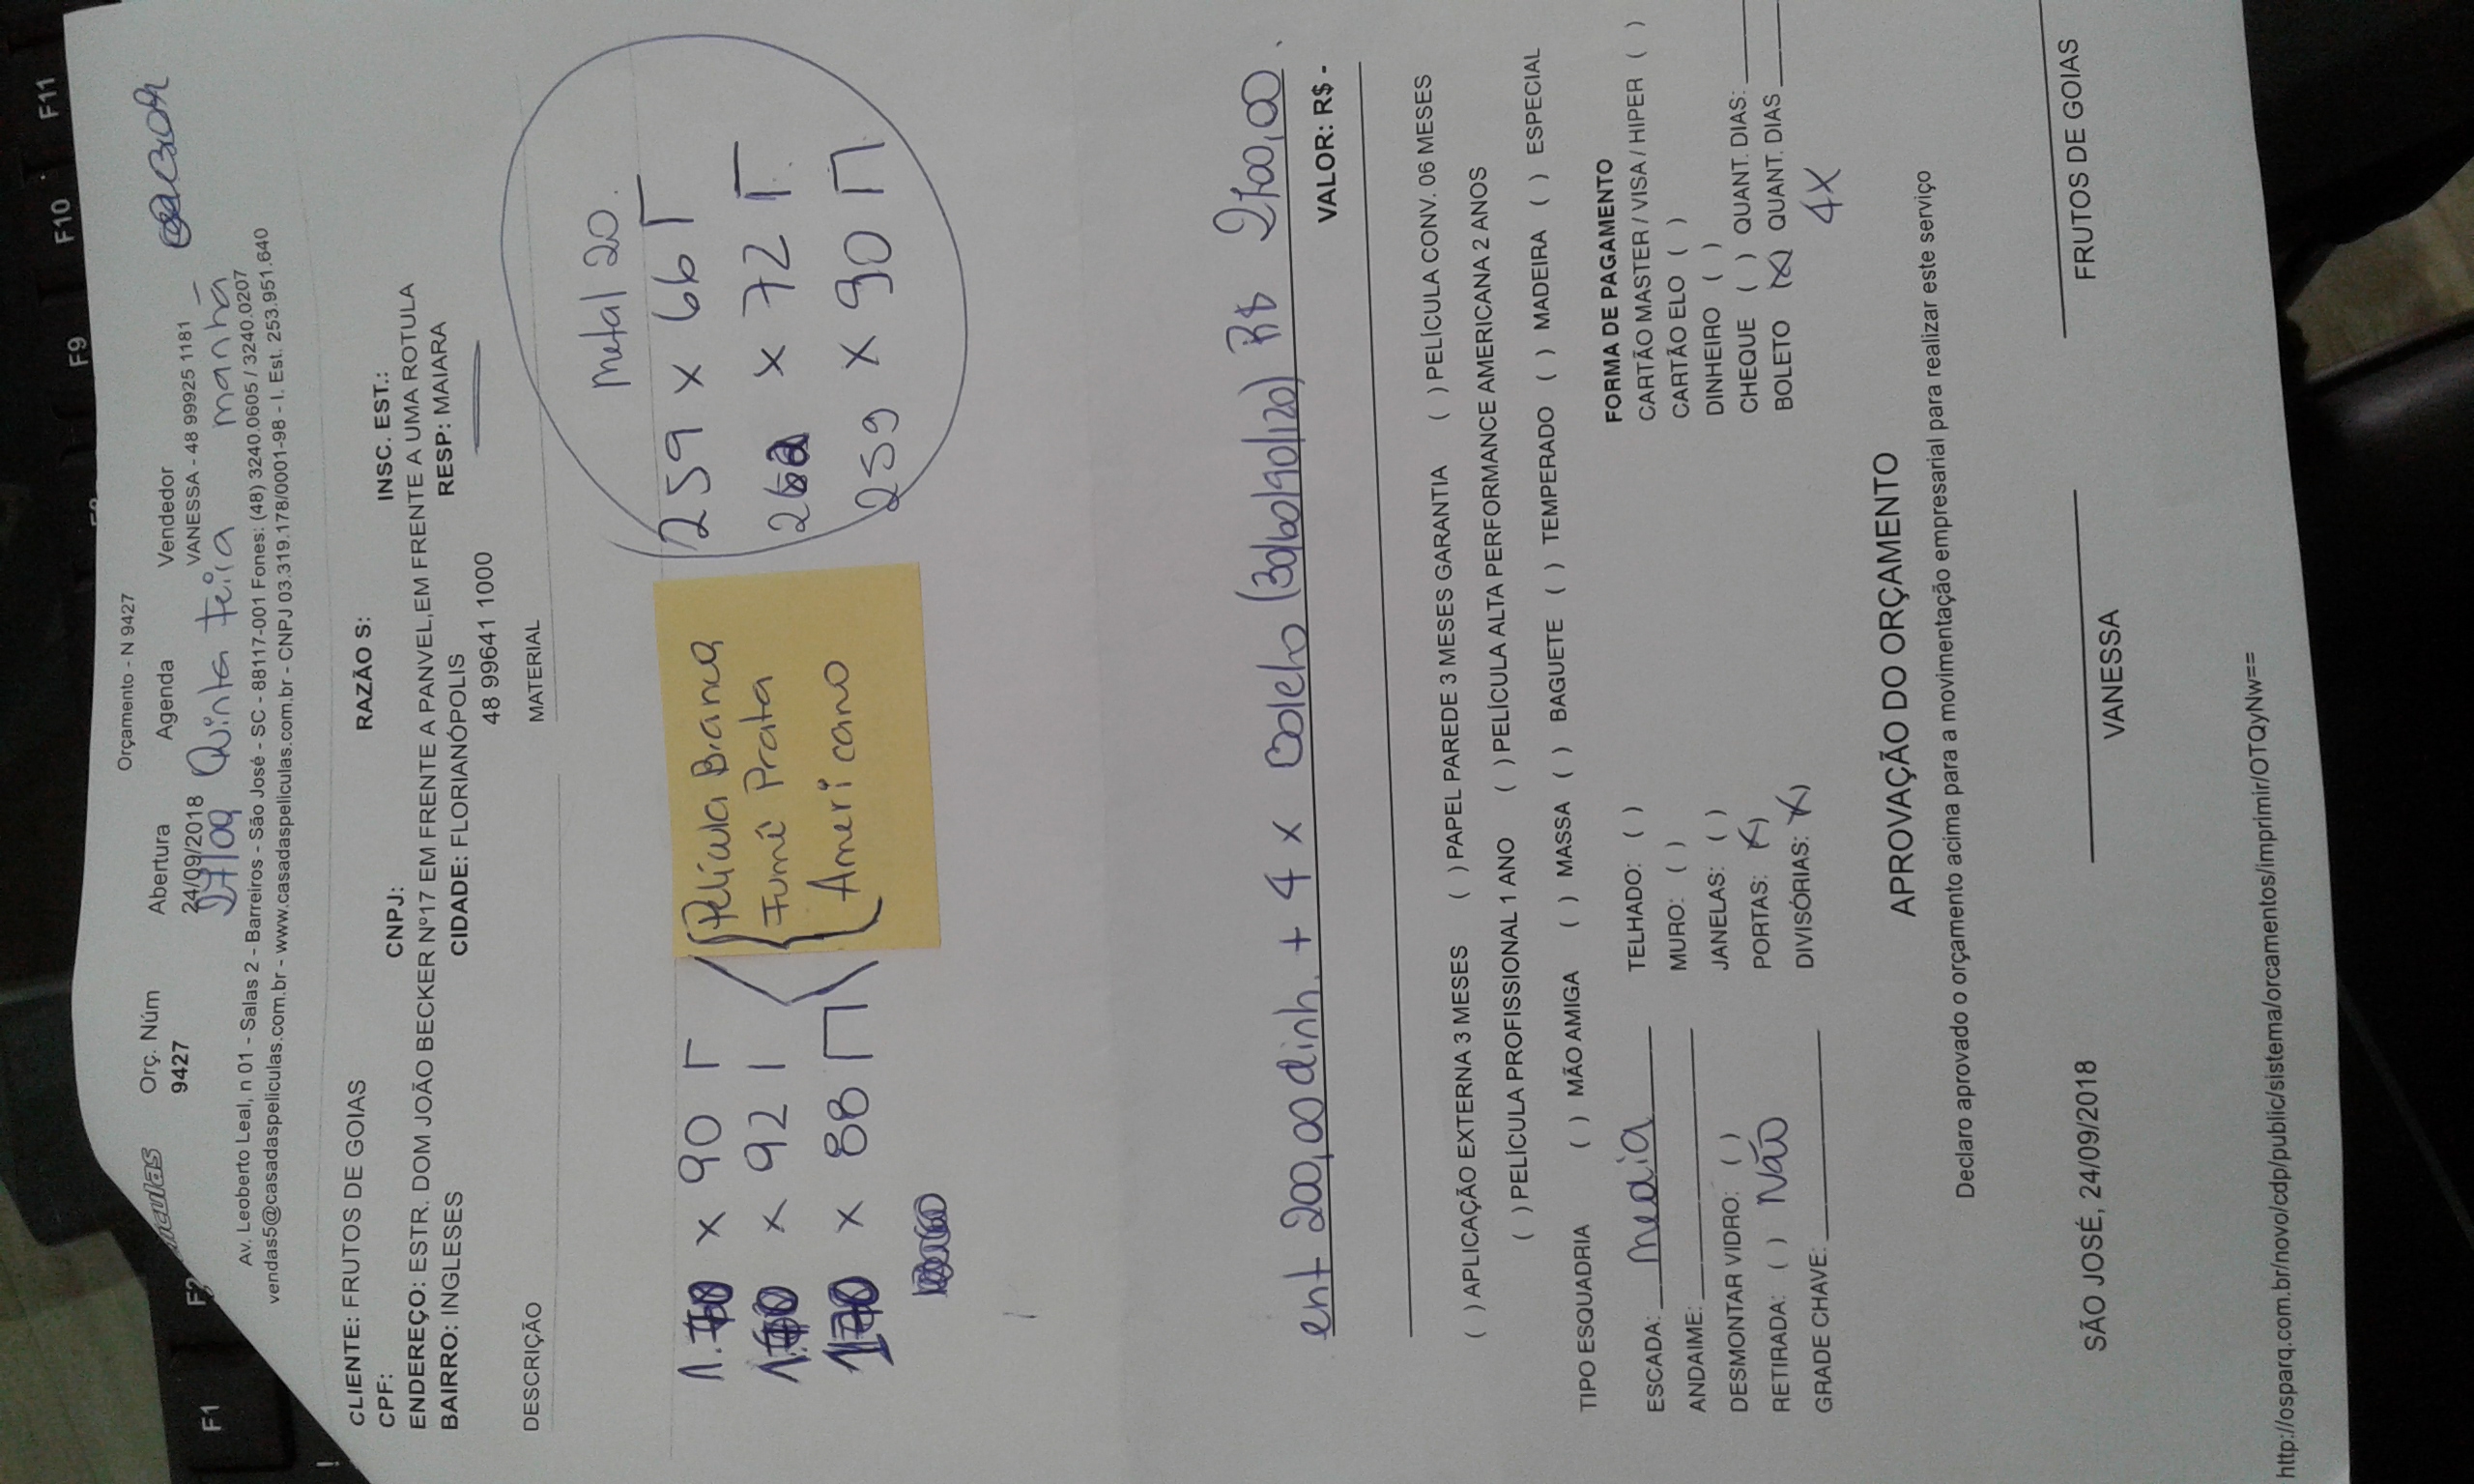 Orçamento - N 9427
Orç. Núm Abertura Agenda Vendedor
9427 24/09/2018 VANESSA - 48 99925 1181
27/09 Quinta feira manhã
Av. Leoberto Leal, n 01 - Salas 2 - Barreiros - São José - SC - 88117-001 Fones: (48) 3240.0605 / 3240.0207
vendas5@casadaspeliculas.com.br - www.casadaspeliculas.com.br - CNPJ 03.319.178/0001-98 - I. Est. 253.951.640
CLIENTE: FRUTOS DE GOIAS RAZÃO S:
CPF: CNPJ: INSC. EST.:
ENDEREÇO: ESTR. DOM JOÃO BECKER Nº17 EM FRENTE A PANVEL,EM FRENTE A UMA ROTULA
BAIRRO: INGLESES CIDADE: FLORIANÓPOLIS RESP: MAIARA
48 99641 1000
DESCRIÇÃO MATERIAL
metal 20
x 90 Película Branca 259 x 66
x 92 Fumê Prata x 72
x 88 Americano 259 x 90
ent 200,00 dinh. + 4 x boleto (30/60/90/120) R$ 2700,00.
VALOR: R$ -
( ) APLICAÇÃO EXTERNA 3 MESES ( ) PAPEL PAREDE 3 MESES GARANTIA ( ) PELÍCULA CONV. 06 MESES
( ) PELÍCULA PROFISSIONAL 1 ANO ( ) PELÍCULA ALTA PERFORMANCE AMERICANA 2 ANOS
TIPO ESQUADRIA ( ) MÃO AMIGA ( ) MASSA ( ) BAGUETE ( ) TEMPERADO ( ) MADEIRA ( ) ESPECIAL
FORMA DE PAGAMENTO
ESCADA: media TELHADO: ( ) CARTÃO MASTER / VISA / HIPER ( )
ANDAIME: MURO: ( ) CARTÃO ELO ( )
DESMONTAR VIDRO: ( ) JANELAS: ( ) DINHEIRO ( )
RETIRADA: ( ) Não PORTAS: (X) CHEQUE ( ) QUANT. DIAS:
GRADE CHAVE: DIVISÓRIAS: (X) BOLETO (X) QUANT. DIAS
4X
APROVAÇÃO DO ORÇAMENTO
Declaro aprovado o orçamento acima para a movimentação empresarial para realizar este serviço
SÃO JOSÉ, 24/09/2018 VANESSA FRUTOS DE GOIAS
http://osparq.com.br/novo/cdp/public/sistema/orcamentos/imprimir/OTQyNw==
F1
F9
F10
F11